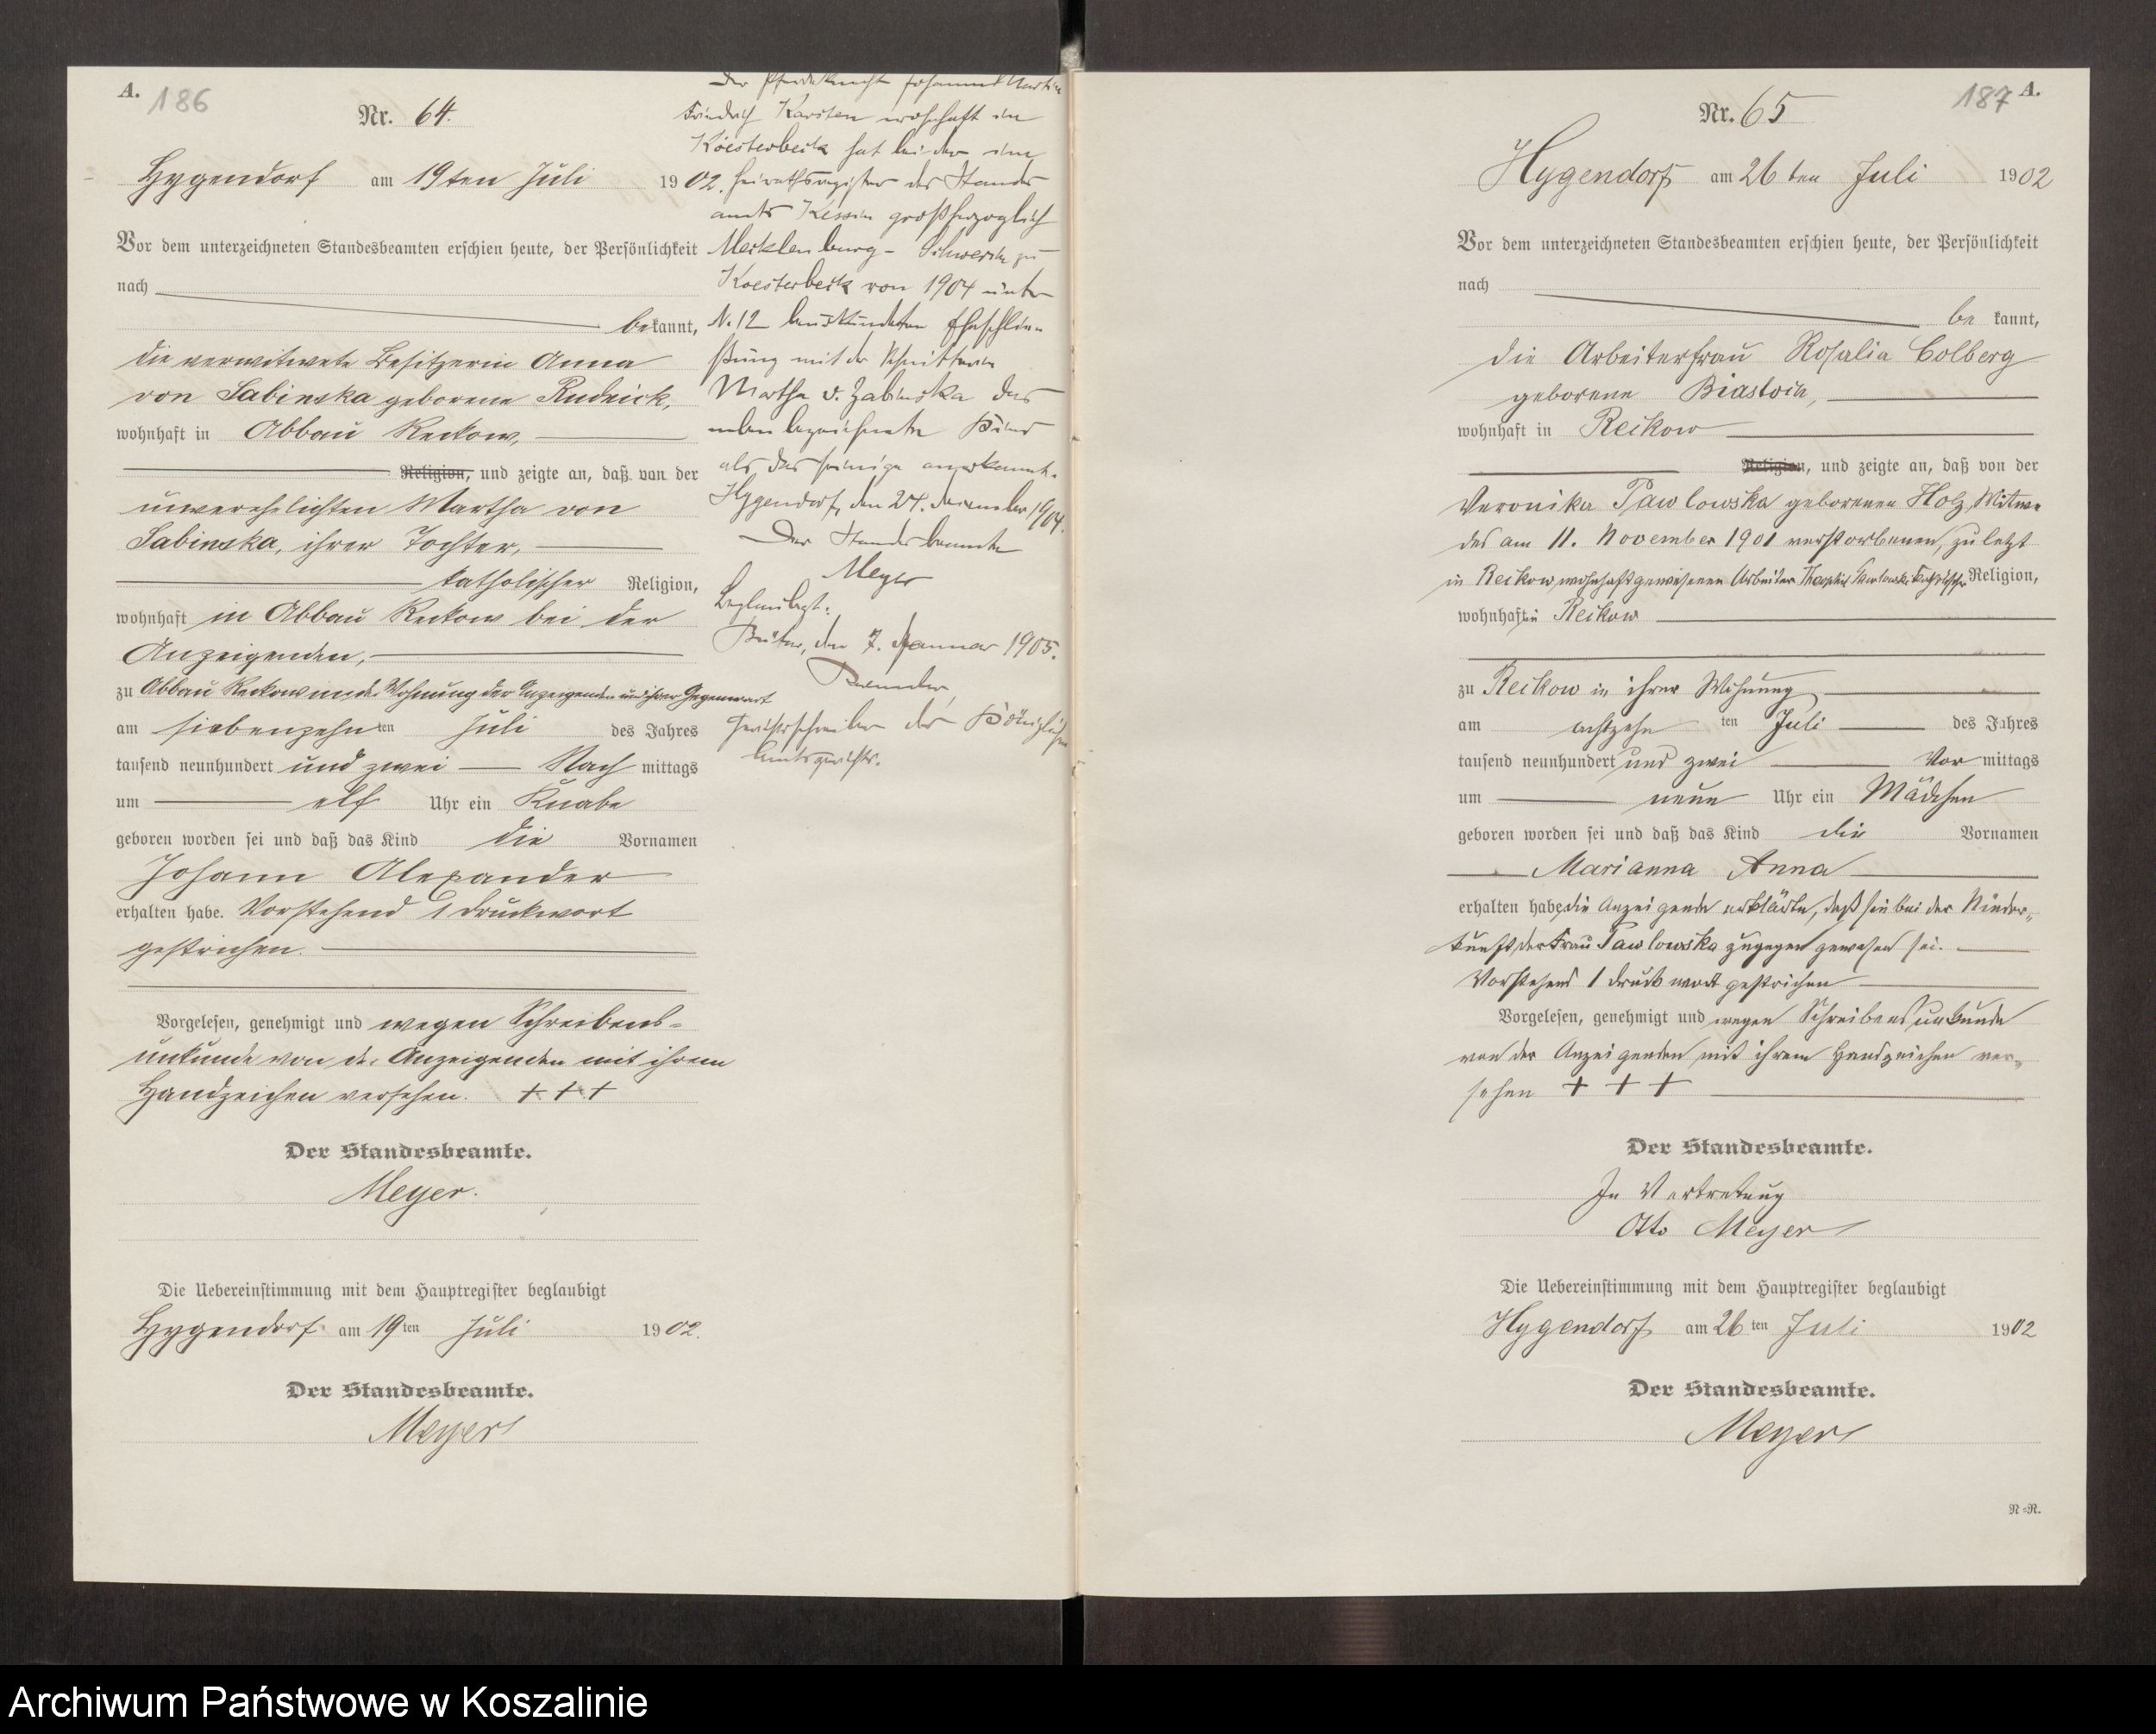 A.
186
Nr. 64.
Hygendorf am 19ten Juli 1902.
Vor dem unterzeichneten Standesbeamten erschien heute, der Persönlichkeit
nach
bekannt,
die verwitwete Besitzerin Anna
von Sabinska geborene Rudnick,
wohnhaft in Abbau Reckow,
Religion, und zeigte an, daß von der
unverehelichten Martha von
Sabinska, ihrer Tochter,
katholischer Religion,
wohnhaft in Abbau Reckow bei der
Anzeigenden,
zu Abbau Reckow in der Wohnung der Anzeigenden und ihrer Gegenwart
am siebenzehnten Juli des Jahres
tausend neunhundert und zwei Nach mittags
um elf Uhr ein Knabe
geboren worden sei und daß das Kind die Vornamen
Johann Alexander
erhalten habe. Vorstehend 1 Druckwort
gestrichen.
Vorgelesen, genehmigt und wegen Schreibens-
unkunde von der Anzeigenden mit ihrem
Handzeichen versehen. + + +
Der Standesbeamte.
Meyer.
Die Uebereinstimmung mit dem Hauptregister beglaubigt
Hygendorf am 19ten Juli 1902.
Der Standesbeamte.
Meyer
Der Pferdeknecht Johannes Martin
Friedrich Karsten wohnhaft in
Koesterbeck hat bei der im
Heirathsregister des Standes
amts Kessin großherzoglich
Mecklenburg-Schwerin zu
Koesterbeck von 1904 unter
N. 12 beurkundeten Eheschlie-
ßung mit der Schnitterin
Martha v. Zabinska das
neben bezeichnete Kind
als das seinige anerkannt.
Hygendorf, den 24. Dezember 1904.
Der Standesbeamte
Meyer
Beglaubigt:
Bütow, den 7. Januar 1905.
Gerichtsschreiber des Königlichen
Amtsgerichts.
187 A.
Nr. 65
Hygendorf am 26ten Juli 1902
Vor dem unterzeichneten Standesbeamten erschien heute, der Persönlichkeit
nach
be kannt,
die Arbeiterfrau Rosalia Colberg
geborene Biastoch,
wohnhaft in Reikow
Religion, und zeigte an, daß von der
Veronika Pawlowska geborenen Holz, Witwe
des am 11. November 1901 verstorbenen, zuletzt
in Reikow wohnhaft gewesenen Arbeiter Theophil Pawlowski katholischer Religion,
wohnhaft in Reikow
zu Reikow in ihrer Wohnung
am achtzehn ten Juli des Jahres
tausend neunhundert und zwei Vor mittags
um neun Uhr ein Mädchen
geboren worden sei und daß das Kind die Vornamen
Marianna Anna
erhalten habe die Anzeigende erklärte, daß sie bei der Nieder-
kunft der Frau Pawlowska zugegen gewesen sei.
Vorstehend 1 Druckwort gestrichen
Vorgelesen, genehmigt und wegen Schreibensunkunde
von der Anzeigenden mit ihrem Handzeichen ver-
sehen + + +
Der Standesbeamte.
In Vertretung
Otto Meyer
Die Uebereinstimmung mit dem Hauptregister beglaubigt
Hygendorf am 26ten Juli 1902
Der Standesbeamte.
Meyer
N-R.
Archiwum Państwowe w Koszalinie